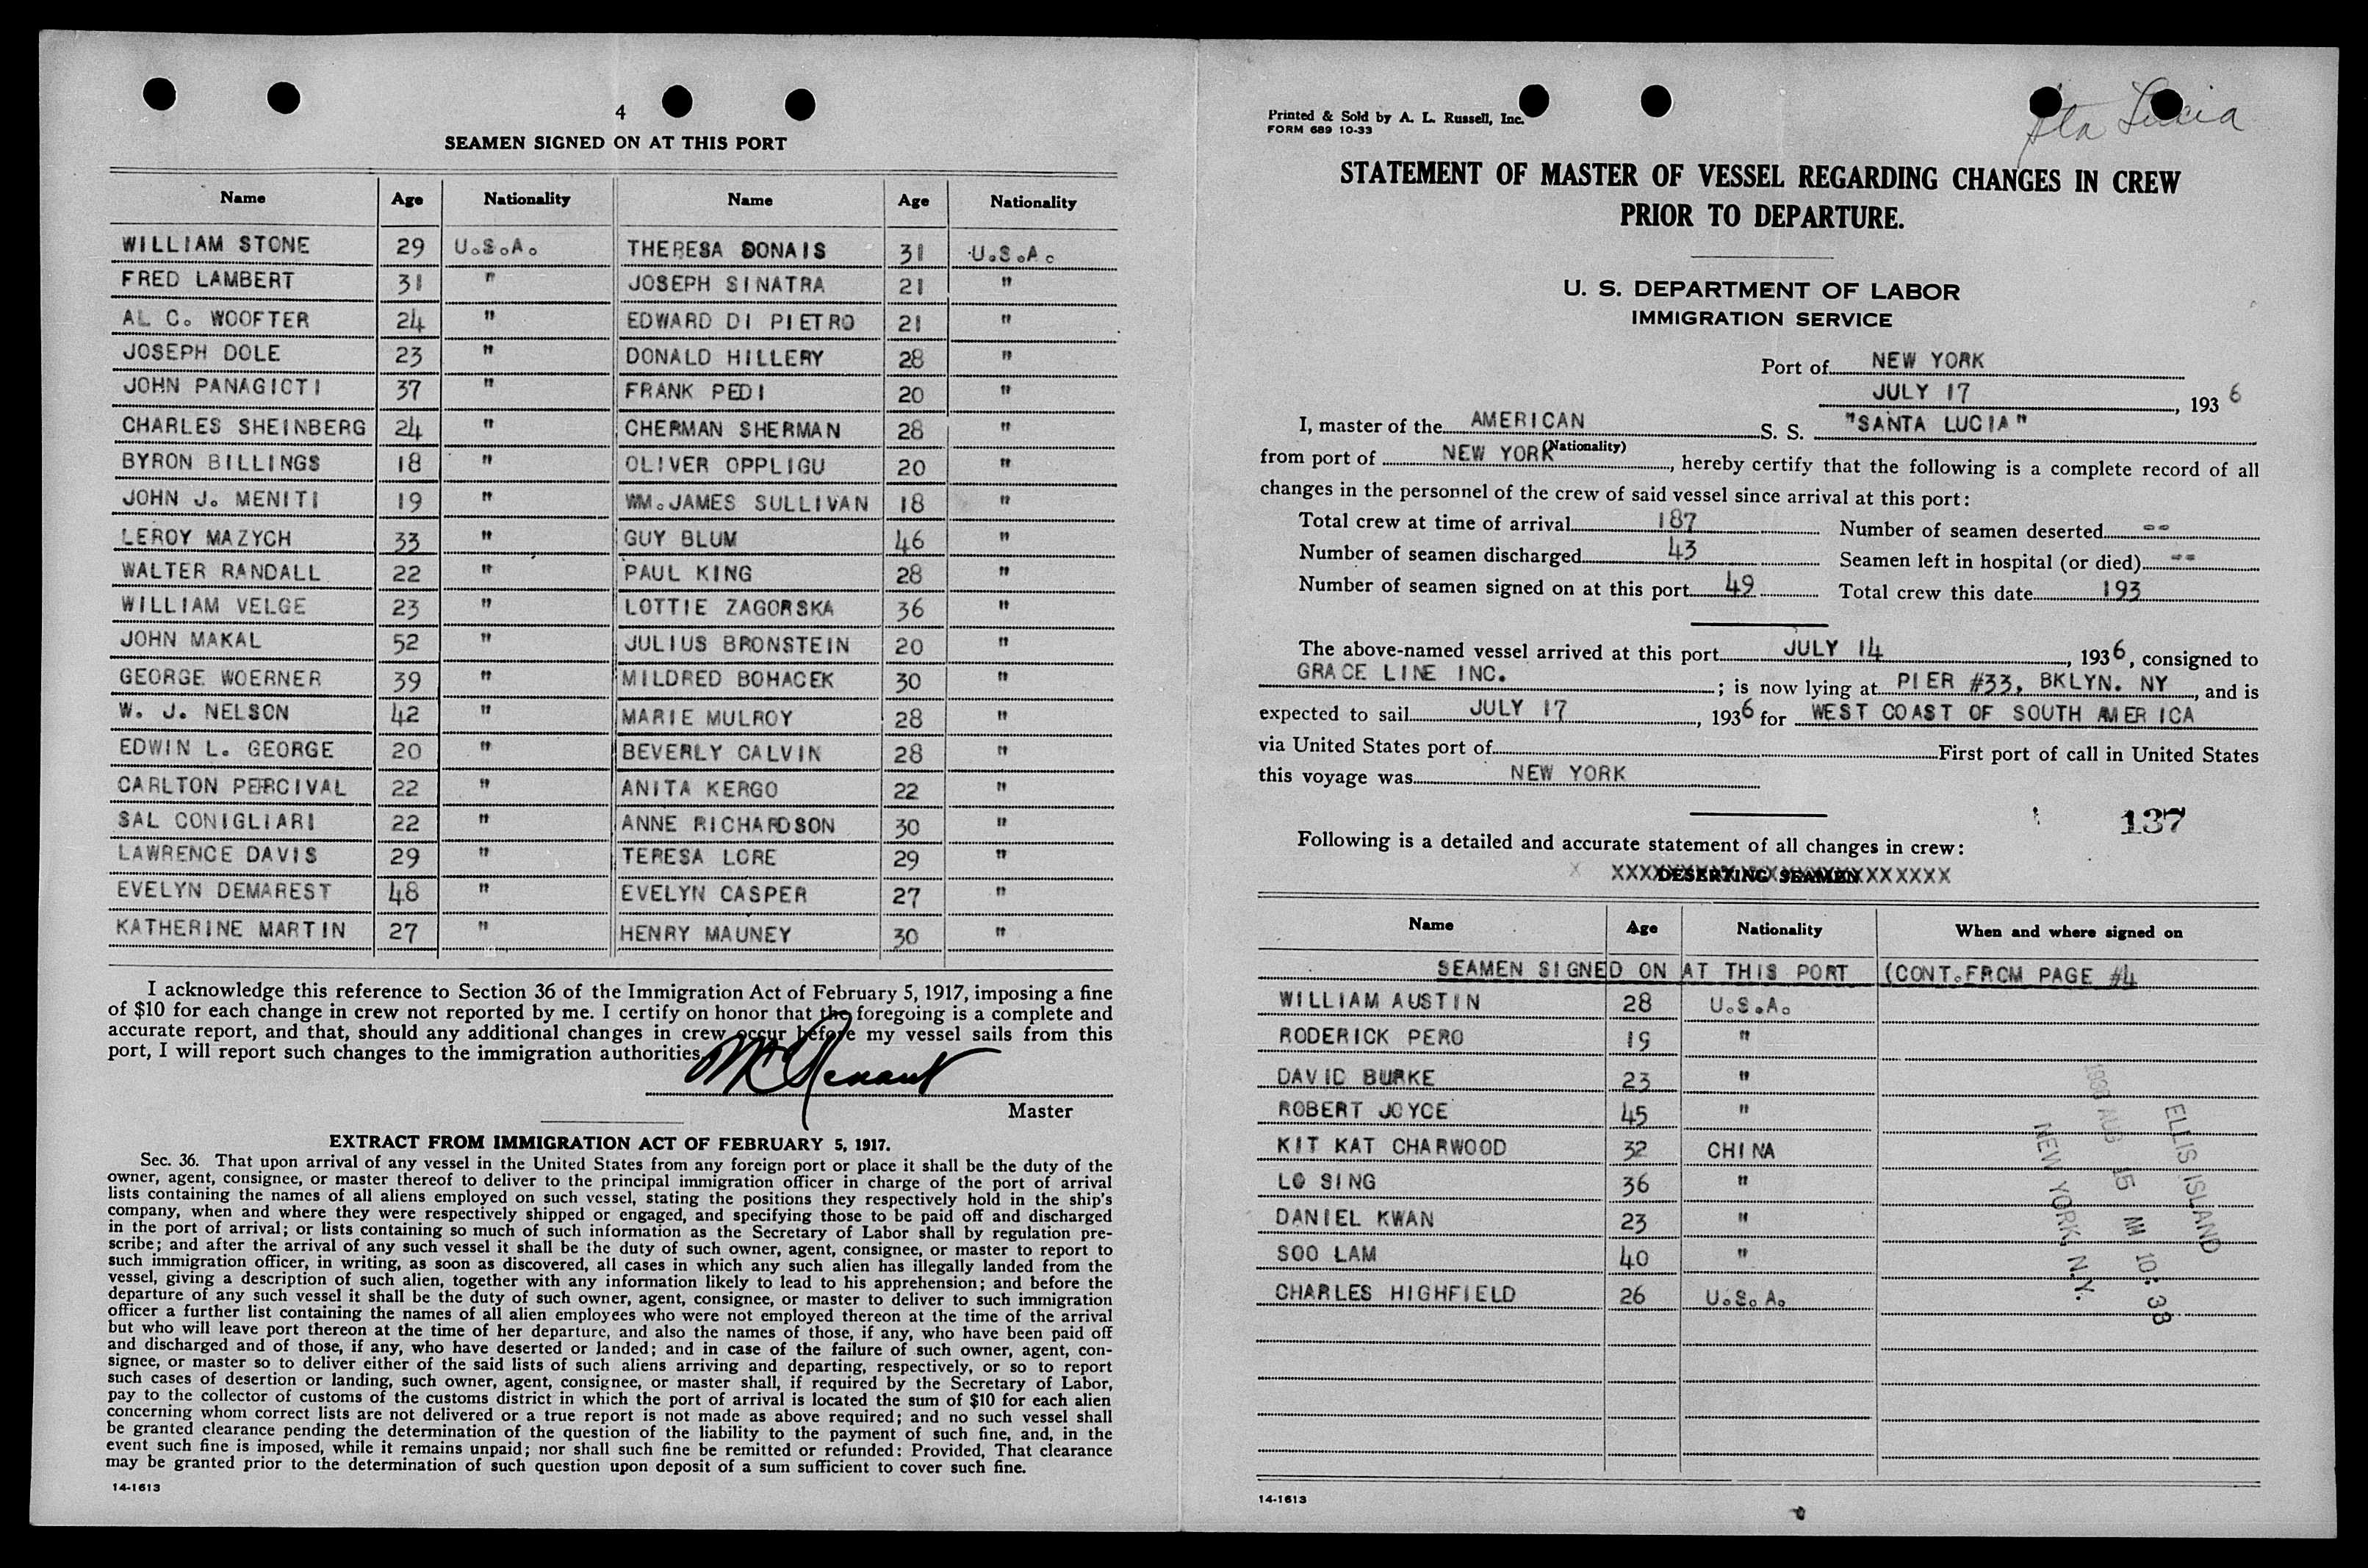 4
SEAMEN SIGNED ON AT THIS PORT
Name Age Nationality Name Age Nationality
WILLIAM STONE 29 U.S.A. THERESA DONAIS 31 U.S.A.
FRED LAMBERT 31 " JOSEPH SINATRA 21 "
AL C. WOOFTER 24 " EDWARD DI PIETRO 21 "
JOSEPH DOLE 23 " DONALD HILLERY 28 "
JOHN PANAGIOTI 37 " FRANK PEDI 20 "
CHARLES SHEINBERG 24 " CHERMAN SHERMAN 28 "
BYRON BILLINGS 18 " OLIVER OPPLIGU 20 "
JOHN J. MENITI 19 " WM. JAMES SULLIVAN 18 "
LEROY MAZYCH 33 " GUY BLUM 46 "
WALTER RANDALL 22 " PAUL KING 28 "
WILLIAM VELGE 23 " LOTTIE ZAGORSKA 36 "
JOHN MAKAL 52 " JULIUS BRONSTEIN 20 "
GEORGE WOERNER 39 " MILDRED BOHACEK 30 "
W. J. NELSON 42 " MARIE MULROY 28 "
EDWIN L. GEORGE 20 " BEVERLY CALVIN 28 "
CARLTON PERCIVAL 22 " ANITA KERGO 22 "
SAL CONIGLIARI 22 " ANNE RICHARDSON 30 "
LAWRENCE DAVIS 29 " TERESA LORE 29 "
EVELYN DEMAREST 48 " EVELYN CASPER 27 "
KATHERINE MARTIN 27 " HENRY MAUNEY 30 "
I acknowledge this reference to Section 36 of the Immigration Act of February 5, 1917, imposing a fine
of $10 for each change in crew not reported by me. I certify on honor that the foregoing is a complete and
accurate report, and that, should any additional changes in crew occur before my vessel sails from this
port, I will report such changes to the immigration authorities.
Master
EXTRACT FROM IMMIGRATION ACT OF FEBRUARY 5, 1917.
Sec. 36. That upon arrival of any vessel in the United States from any foreign port or place it shall be the duty of the
owner, agent, consignee, or master thereof to deliver to the principal immigration officer in charge of the port of arrival
lists containing the names of all aliens employed on such vessel, stating the positions they respectively hold in the ship's
company, when and where they were respectively shipped or engaged, and specifying those to be paid off and discharged
in the port of arrival; or lists containing so much of such information as the Secretary of Labor shall by regulation pre-
scribe; and after the arrival of any such vessel it shall be the duty of such owner, agent, consignee, or master to report to
such immigration officer, in writing, as soon as discovered, all cases in which any such alien has illegally landed from the
vessel, giving a description of such alien, together with any information likely to lead to his apprehension; and before the
departure of any such vessel it shall be the duty of such owner, agent, consignee, or master to deliver to such immigration
officer a further list containing the names of all alien employees who were not employed thereon at the time of the arrival
but who will leave port thereon at the time of her departure, and also the names of those, if any, who have been paid off
and discharged and of those, if any, who have deserted or landed; and in case of the failure of such owner, agent, con-
signee, or master so to deliver either of the said lists of such aliens arriving and departing, respectively, or so to report
such cases of desertion or landing, such owner, agent, consignee, or master shall, if required by the Secretary of Labor,
pay to the collector of customs of the customs district in which the port of arrival is located the sum of $10 for each alien
concerning whom correct lists are not delivered or a true report is not made as above required; and no such vessel shall
be granted clearance pending the determination of the question of the liability to the payment of such fine, and, in the
event such fine is imposed, while it remains unpaid; nor shall such fine be remitted or refunded: Provided, That clearance
may be granted prior to the determination of such question upon deposit of a sum sufficient to cover such fine.
14-1613
Sta Lucia
Printed & Sold by A. L. Russell, Inc.
FORM 689 10-33
STATEMENT OF MASTER OF VESSEL REGARDING CHANGES IN CREW
PRIOR TO DEPARTURE.
U. S. DEPARTMENT OF LABOR
IMMIGRATION SERVICE
Port of NEW YORK
JULY 17, 1936
I, master of the AMERICAN S. S. "SANTA LUCIA"
(Nationality)
from port of NEW YORK, hereby certify that the following is a complete record of all
changes in the personnel of the crew of said vessel since arrival at this port:
Total crew at time of arrival 187 Number of seamen deserted --
Number of seamen discharged 43 Seamen left in hospital (or died) --
Number of seamen signed on at this port 49 Total crew this date 193
The above-named vessel arrived at this port JULY 14, 1936, consigned to
GRACE LINE INC.; is now lying at PIER #33, BKLYN. NY, and is
expected to sail JULY 17, 1936 for WEST COAST OF SOUTH AMERICA
via United States port of First port of call in United States
this voyage was NEW YORK
137
Following is a detailed and accurate statement of all changes in crew:
DESERTING SEAMEN
Name Age Nationality When and where signed on
SEAMEN SIGNED ON AT THIS PORT (CONT.FROM PAGE #4
WILLIAM AUSTIN 28 U.S.A.
RODERICK PERO 19 "
DAVID BURKE 23 "
ROBERT JOYCE 45 "
KIT KAT CHARWOOD 32 CHINA
LO SING 36 "
DANIEL KWAN 23 "
SOO LAM 40 "
CHARLES HIGHFIELD 26 U.S.A.
ELLIS ISLAND
1936 AUG 15 AM 10:33
NEW YORK, N.Y.
14-1613